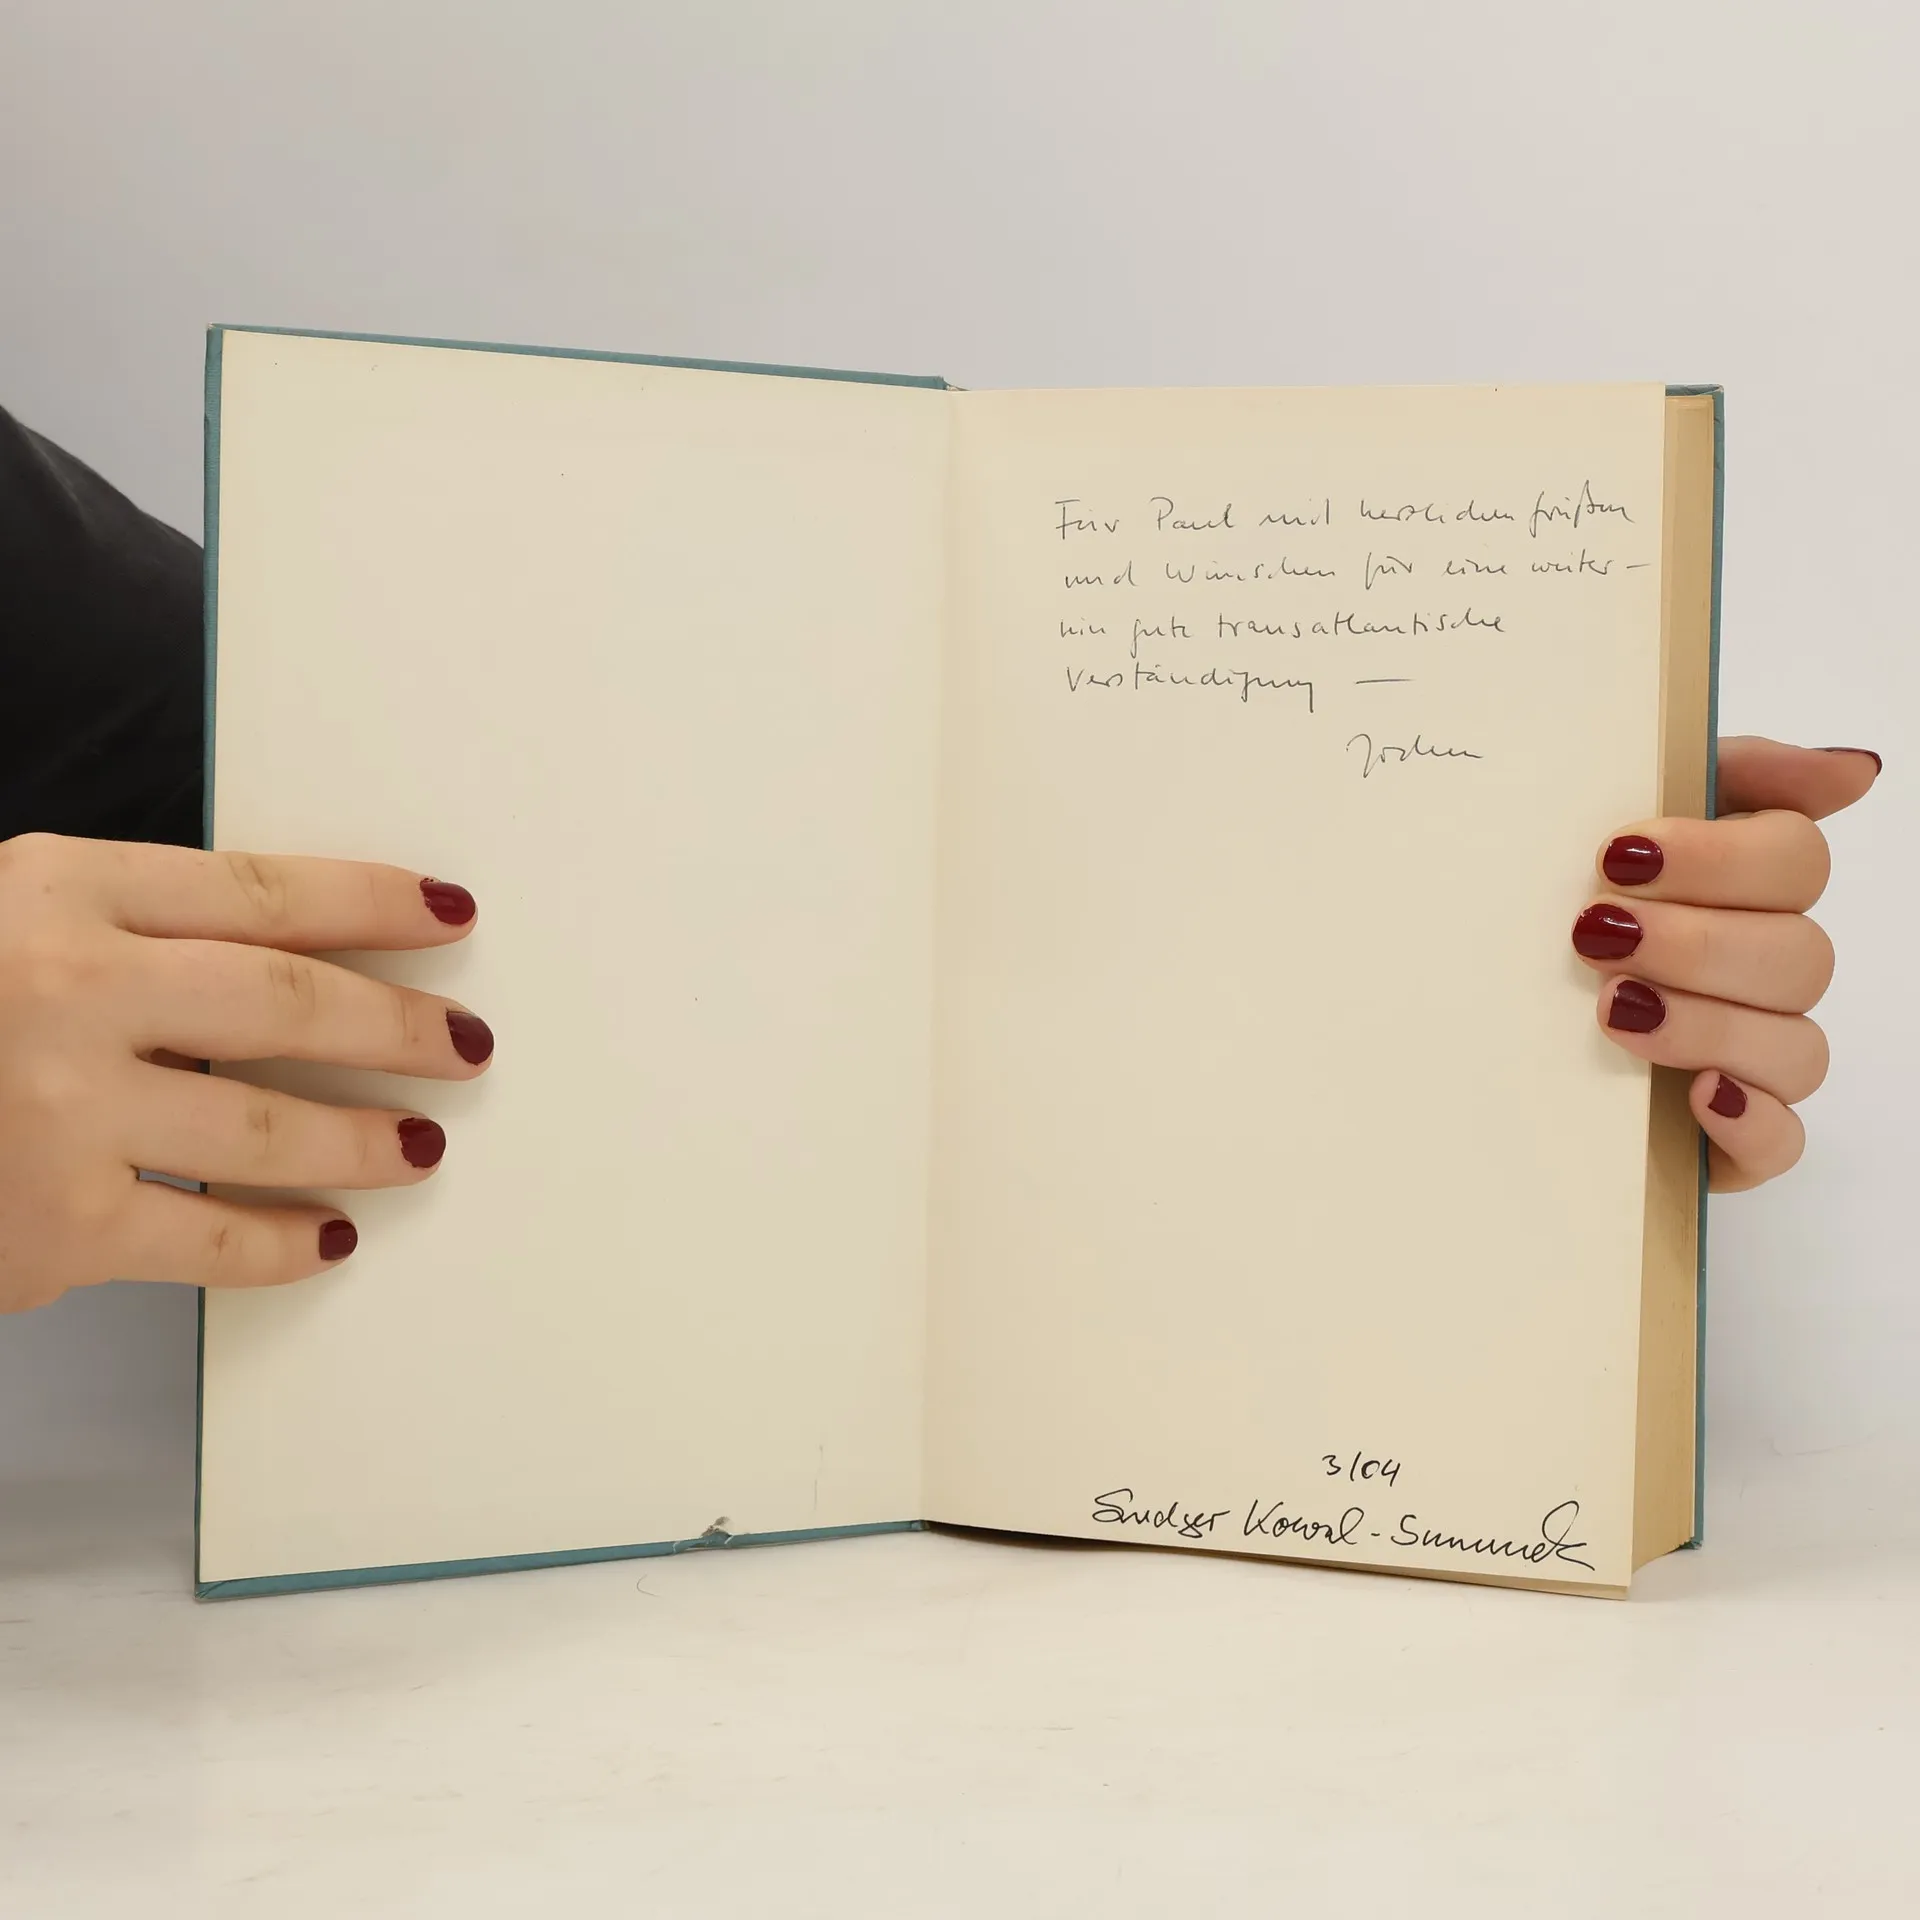 Für Paul mit herzlichen Grüßen
und Wünschen für eine weiter-
hin gute transatlantische
Verständigung —
Jochen
3/04
Kowal-